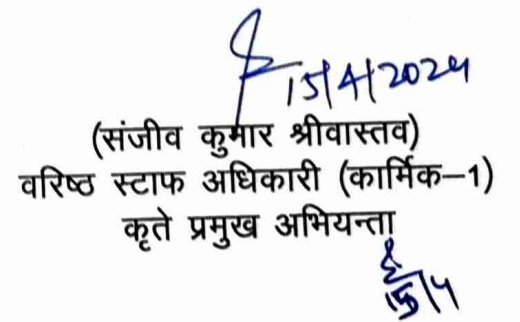 15/4/2024
(संजीव कुमार श्रीवास्तव)
वरिष्ठ स्टाफ अधिकारी (कार्मिक–1)
कृते प्रमुख अभियन्ता
15/4